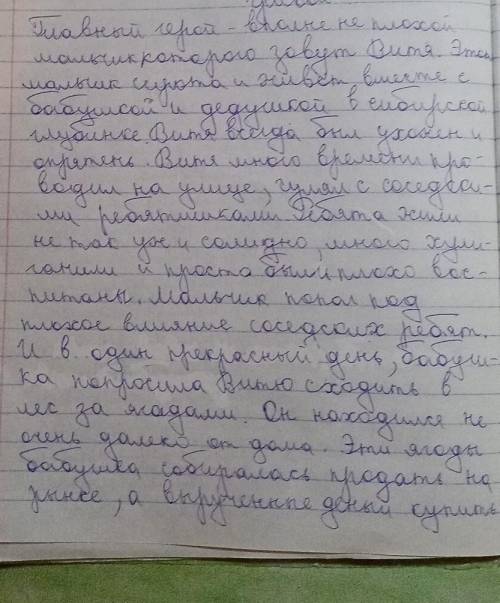 Главный герой - вполне не плохой
мальчик которого зовут Витя. Этот
мальчик сирота и живёт вместе с
бабушкой и дедушкой в сибирской
глубинке. Витя всегда был ухожен и
опрятень. Витя много времени про-
водил на улице, гулял с соседски-
ми ребятишками. Ребята жили
не так уж и солидно, много хули-
ганили и проста были плохо вос-
питаны. Мальчик попал под
плохое влияние соседских ребят.
И в один прекрасный день, бабуш-
ка попросила Витю сходить в
лес за ягадами. Он находился не
очень далеко от дома. Эти ягоды
бабушка собиралась продать на
рынке, а вырученные деньги купить